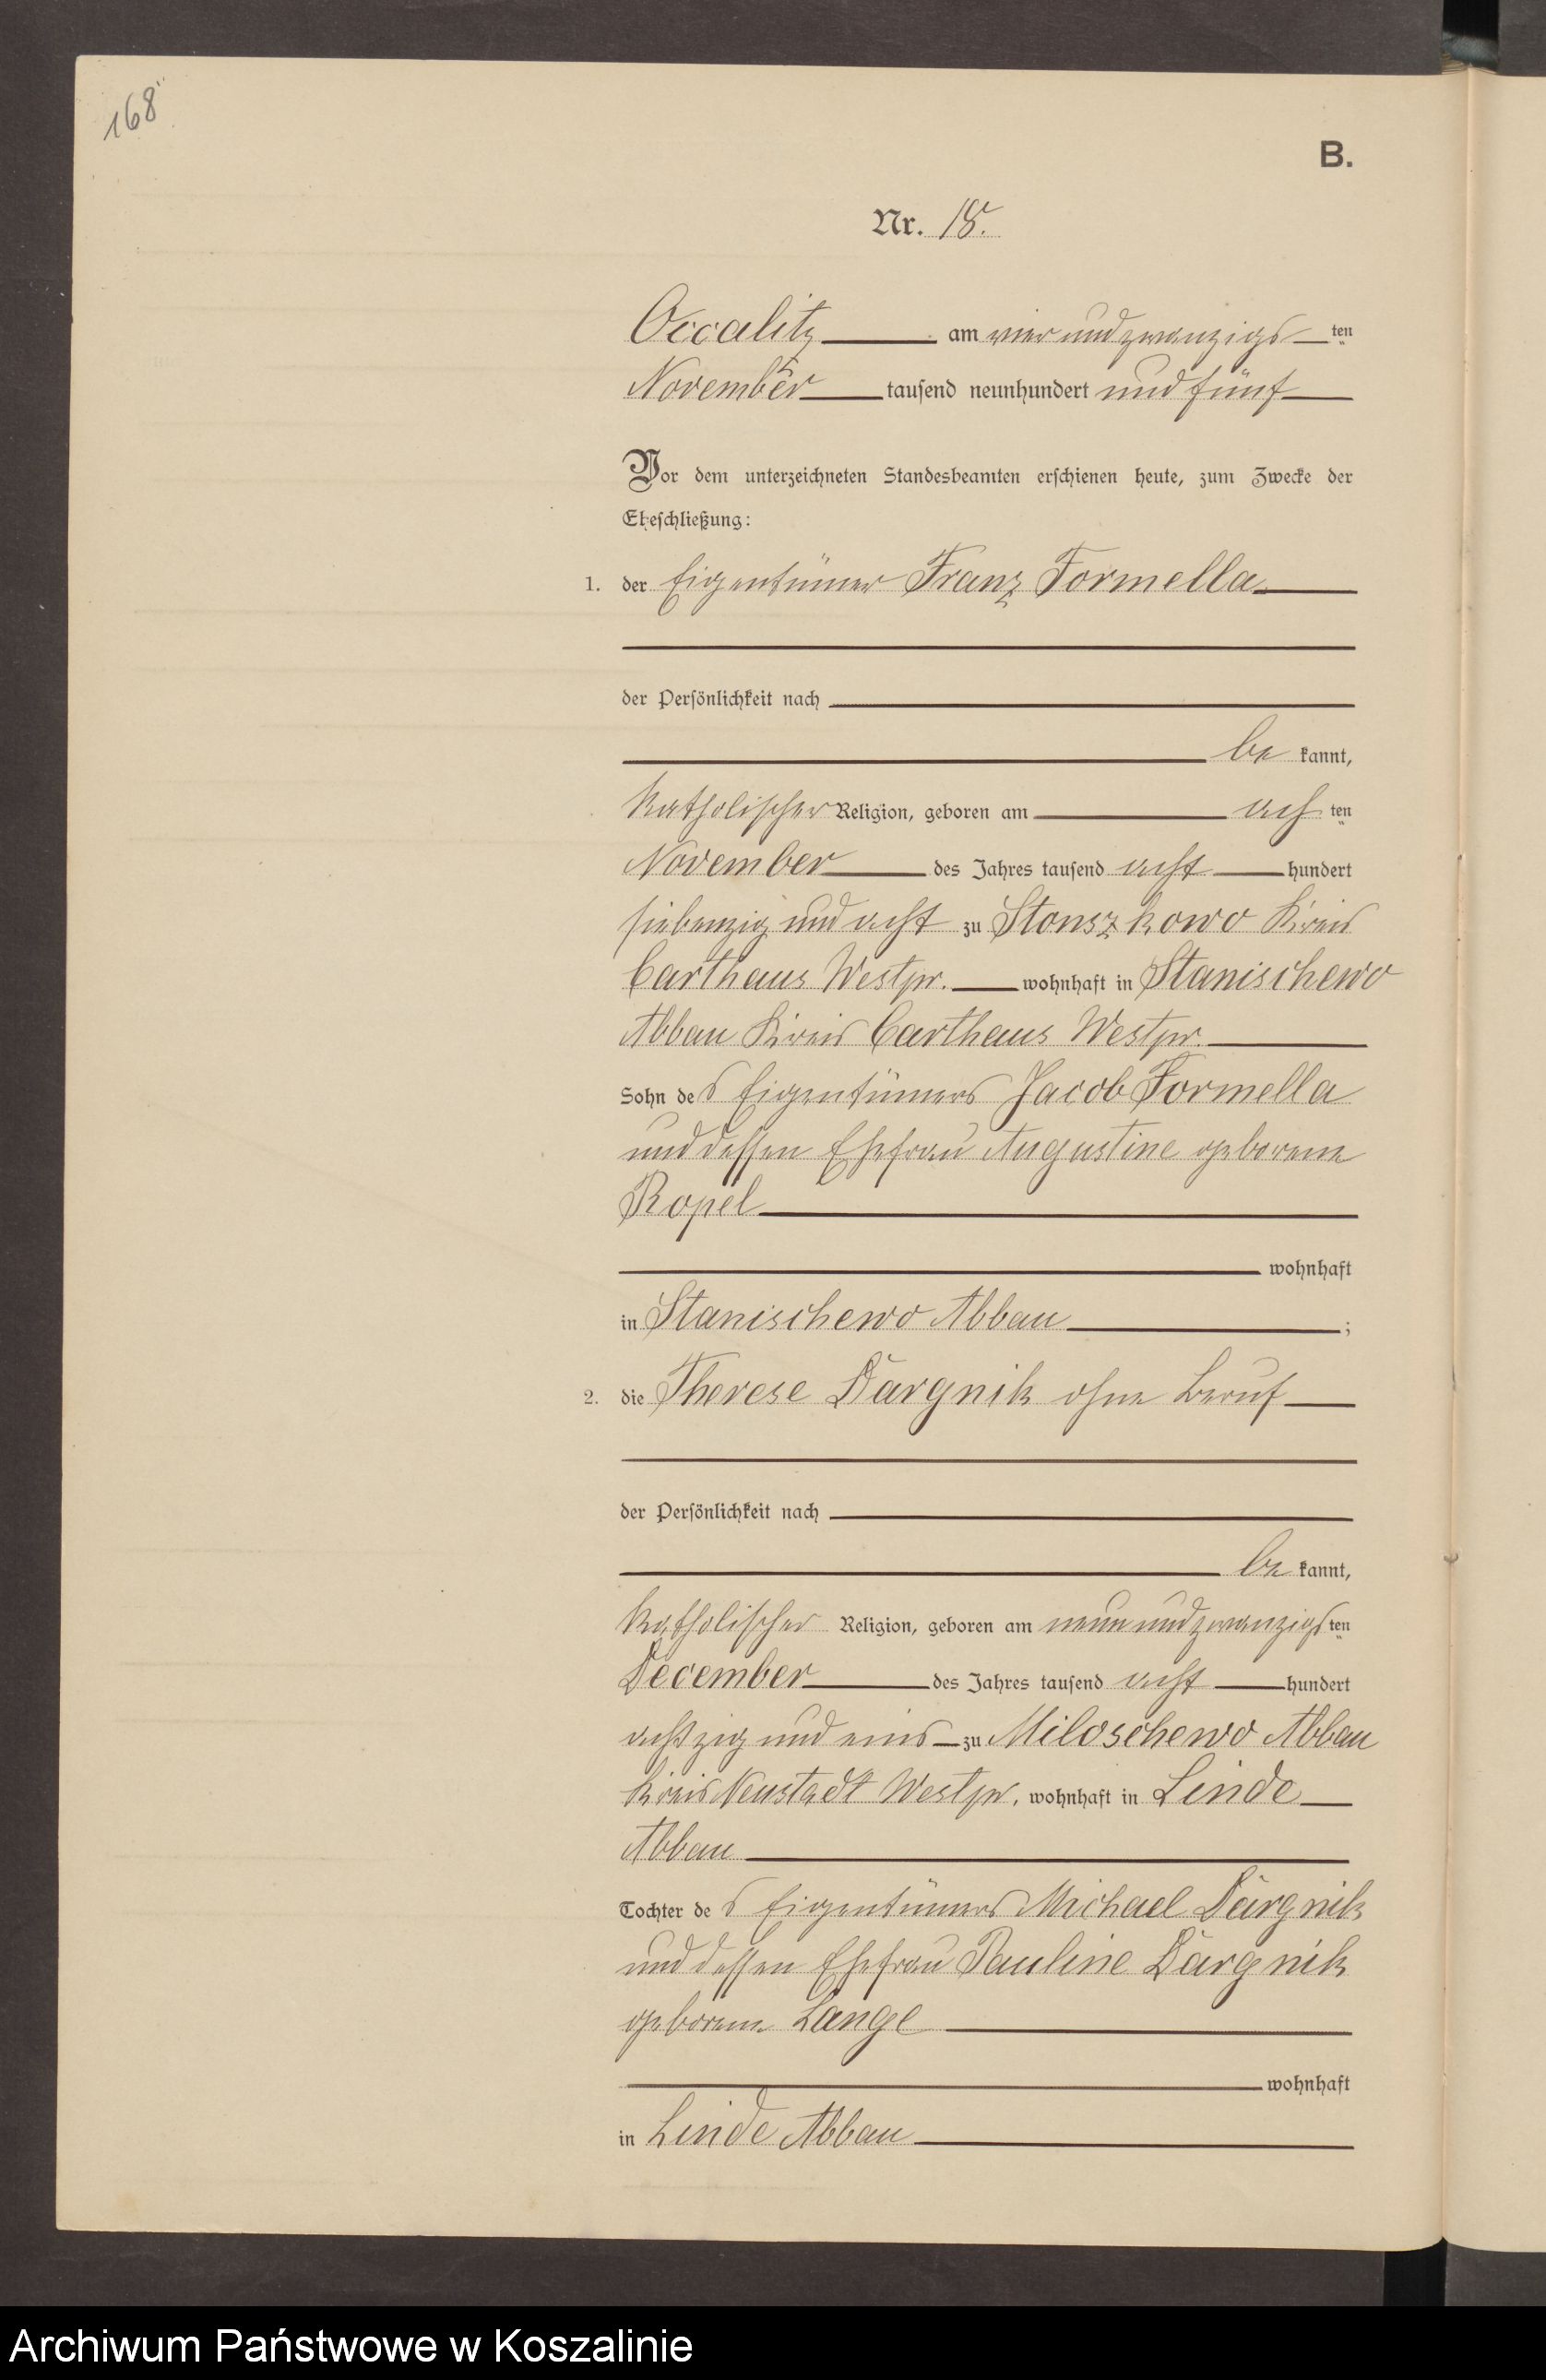 168
B.
Nr. 18.
Occalitz am vier und zwanzigs ten
November tausend neunhundert und fünf
Vor dem unterzeichneten Standesbeamten erschienen heute, zum Zwecke der
Eheschließung:
1. der Eigentümer Franz Formella
der Persönlichkeit nach
be kannt,
katholischer Religion, geboren am ach ten
November des Jahres tausend acht hundert
siebenzig und acht zu Stonszkowo Kreis
Carthaus Westpr. wohnhaft in Stanischewo
Abbau Kreis Carthaus Westpr.
Sohn des Eigentümers Jacob Formella
und dessen Ehefrau Augustine geborene
Ropel
wohnhaft
in Stanischewo Abbau ;
2. die Therese Dargnik ohne Beruf
der Persönlichkeit nach
be kannt,
katholischer Religion, geboren am neun und zwanzigs ten
December des Jahres tausend acht hundert
achtzig und eins zu Miloschewo Abbau
Kreis Neustadt Westpr. wohnhaft in Linde
Abbau
Tochter des Eigentümers Michael Dargnik
und dessen Ehefrau Pauline Dargnik
geborene Lange
wohnhaft
in Linde Abbau
Archiwum Państwowe w Koszalinie